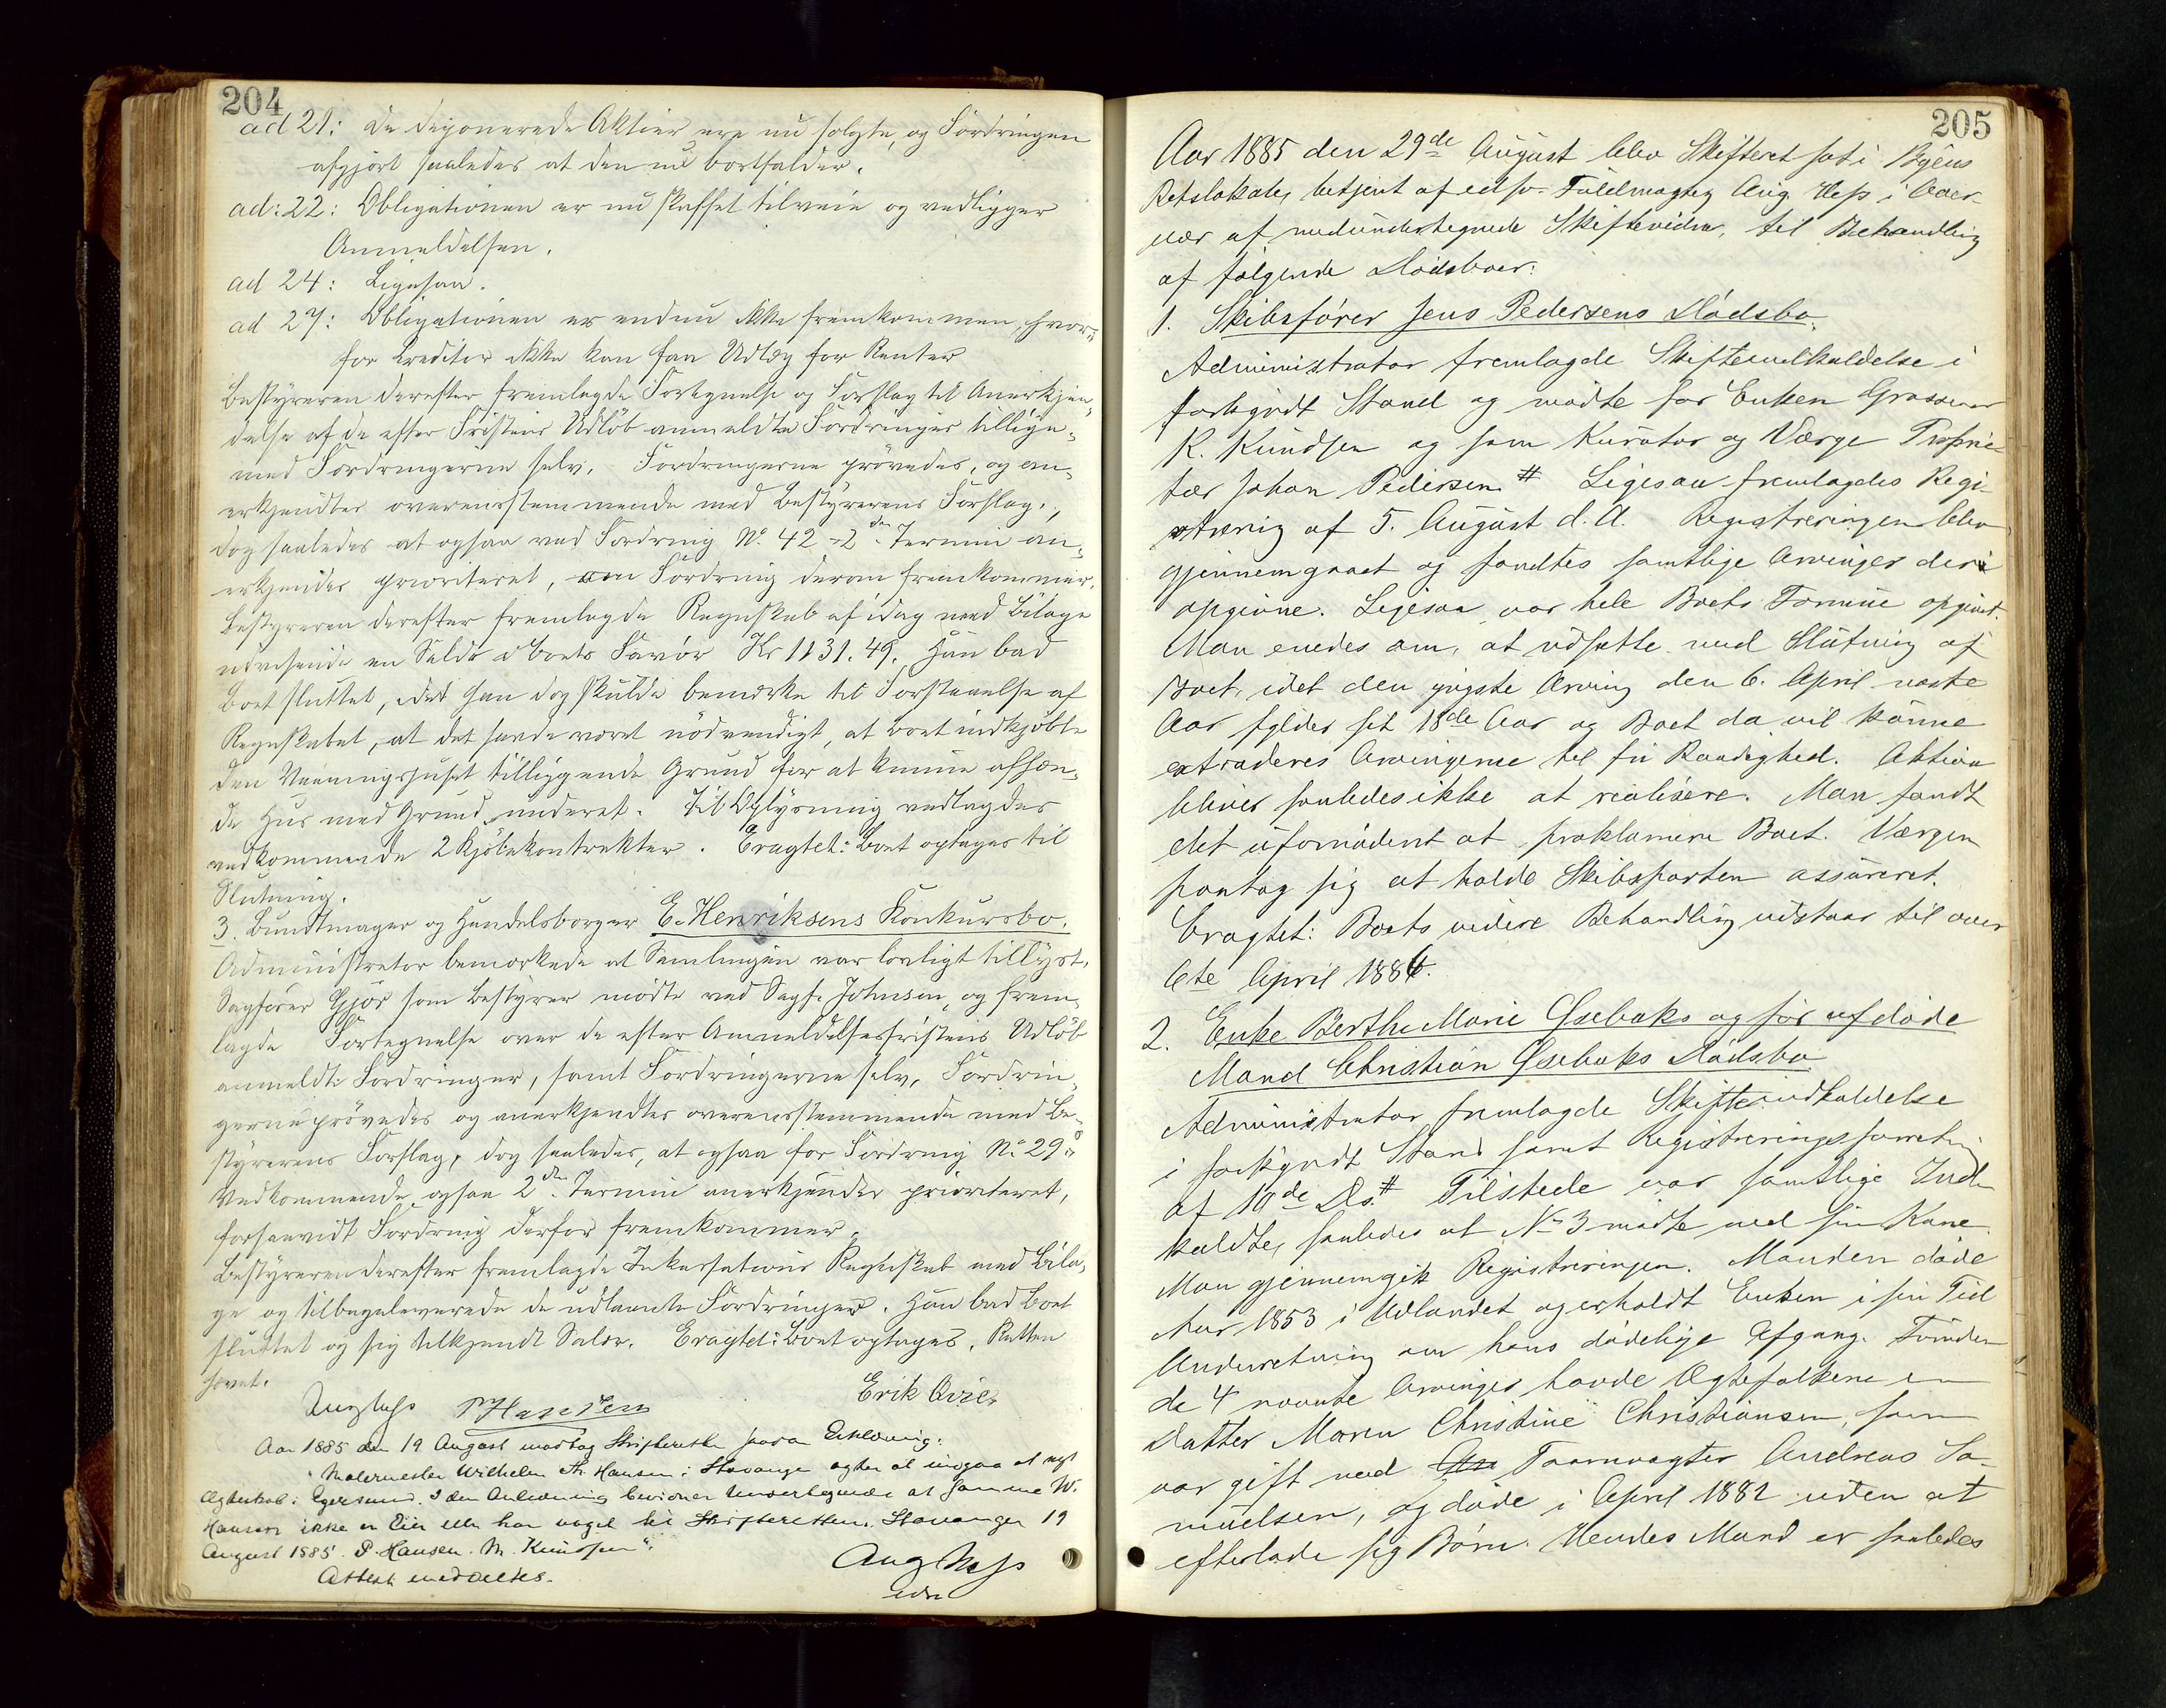 204
ad 21: De deponerede Aktier ere nu solgte, og Fordringen
afgjort saaledes at den nu bortfalder.
ad: 22: Obligationen er nu skaffet tilveie og vedligger
Anmeldelsen.
ad 24: Ligesaa.
ad 27: Obligationen er endnu ikke fremkommen, hvor-
for Creditor ikke kan faa Udlæg for Renter
Bestyreren derefter fremlagde Fortegnelse og Forslag til Anerkjen-
delse af de efter Fristens Udløb anmeldte Fordringer tillige-
med Fordringerne selv. Fordringerne prøvedes, og an-
erkjendtes overensstemmende med Bestyrerens Forslag,
dog saaledes at ogsaa ved Fordring No. 42 2den Termin an-
erkjendes prioriteret, om Fordring derom fremkommer.
Bestyreren derefter fremlagde Regnskab af idag med Bilage
udvisende en Saldo i Boets Favør Kr 1131.49. Han bad
Boet sluttet, idet han dog skulde bemærke til Forstaaelse af
Regnskabet, at det havde været nødvendigt, at Boet indkjøbte
den Vaaningshuset tilliggende Grund for at kunne afhæn-
de Hus med Grund underet. Til Oplysning vedlagdes
vedkommende 2 Kjøbekontrakter. Eragtet: Boet optages til
Slutning.
3. Bundtmager og Handelsborger E. Henriksens Konkursbo.
Administrator bemærkede at Samlingen var lovligt tillyst.
Sagfører Gjør som Bestyrer mødte ved Sagf. Johnsen, og frem-
lagde Fortegnelse over de efter Anmeldelsesfristens Udløb
anmeldte Fordringer, samt Fordringerne selv. Fordrin-
gerne prøvedes og anerkjendtes overensstemmende med Be-
styrerens Forslag, dog saaledes, at ogsaa for Fordring No 29s
Vedkommende ogsaa 2den Termin anerkjendes prioriteret,
forsaavidt Fordring derfor fremkommer.
Bestyreren derefter fremlagde Inkassations Regnskab med Bila-
ge og tilbageleverede de udlaante Fordringer. Han bad Boet
sluttet og sig tilkjendt Salær. Eragtet: Boet optages. Retten
hævet.
Aug Hess P Hansen Erik Qvie
Aar 1885 den 19 August modtog Skifteretten saadan Erklæring:
"Malermester Wilhelm Th. Hansen i Stavanger agter at indgaa et nyt
Ægteskab i Egersund. I den Anledning bevidner Undertegnede at samme W.
Hansen ikke er Eier eller har noget til Skifteretten. Stavanger 19
August 1885. P. Hansen. M. Knudsen".
Attest meddeltes.
Aug Hess
edsv
205
Aar 1885 den 29de August blev Skifteret sat i Byens
Retslokale, betjent af edsv. Fuldmægtig Aug. Hess i Over-
vær af medundertegnede Skiftevidner, til Behandling
af følgende Dødsboer:
1. Skibsfører Jens Pedersens Dødsbo.
Administrator fremlagde Skifteindkaldelse i
forkyndt Stand og mødte for Enken Grosserer
K. Knudsen og som Kurator og Værge Proprie-
tær Johan Pedersen # Ligesaa fremlagdes Regi-
strering af 5. August d. A. Registreringen blev
gjennemgaaet og fandtes samtlige Arvinger deri
opgivne. Ligesaa var hele Boets Formue opgivet.
Man enedes om, at udsætte med Slutning af
Boet, idet den yngste Arving den 6. April næste
Aar fylder sit 18de Aar og Boet da vil kunne
extraderes Arvingerne til fri Raadighed. Aktion
bliver saaledes ikke at realisere. Man fandt
det ufornødent at proklamere Boet. Værgen
paatog sig at holde Skibsparten assureret.
Eragtet: Boets videre Behandling udstaar til over
6te April 1886.
2. Enke Berthe Marie Gsebaks og før afdøde
Mand Christian Gsebaks Dødsbo
Administrator fremlagde Skifteindkaldelse
i forkyndt Stand samt Registreringsforretn.
af 10de Ds. # Tilstede var samtlige Ind-
kaldte, saaledes at No 3 mødte ved sin Kone.
Man gjennemgik Registreringen. Manden døde
Aar 1853 i Udlandet og erholdt Enken i sin Tid
Underretning om hans dødelige Afgang. Foruden
de 4 nævnte Arvinger havde Ægtefolkene en
Datter Maren Christine Christiansen, som
var gift med Taarnvægter Andreas Sa-
muelsen, og døde i April 1882 uden at
efterlade sig Børn. Hendes Mand er saaledes